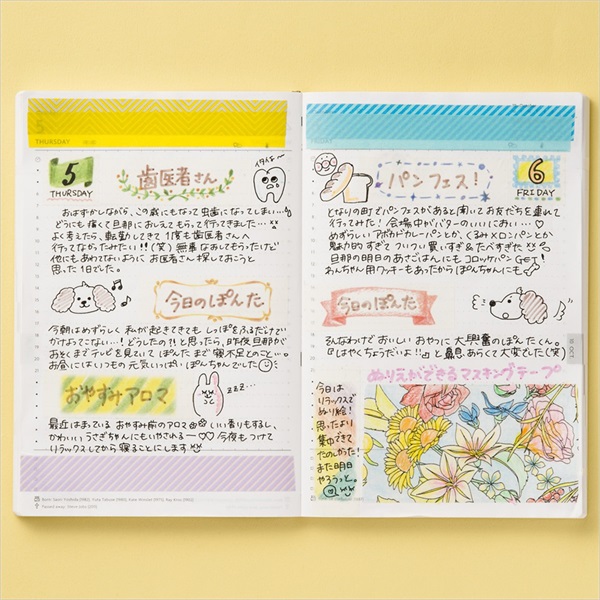 THURSDAY
5
THURSDAY
歯医者さん
イタイよ〜
おはずかしながら、この歳にもなって虫歯になってしまい…
どうにも痛くて旦那におしえてもらって行ってきました…
よく考えたら、転勤してきて1度も歯医者さんへ
行ってなかったみたい!!(笑)無事なおしてもらったけど
他にもあわてないようにお医者さん探しておこうと
思った1日でした。
今日のぽんた
今朝はめずらしく私が起きてきてもしっぽをふるだけで
かけよってこない…!どうしたの!?と思ったら、昨夜旦那が
おそくまでテレビを見ていてぽんたまで寝不足とのこと…。
お昼にはいつもの元気いっぱいぽんちゃんでした
おやすみアロマ
zzz...
最近はまっているおやすみ前のアロマ いい香りもするし、
かわいいうさぎちゃんにもいやされる〜♡♡今夜もつけて
リラックスしてから寝ることにします
パンフェス!
6
FRIDAY
となりの町でパンフェスがあると聞いてお友だちを連れて
行ってみた!会場中がバターのいいにおい…♡
めずらしいアボカドカレーパンとか、くるみメロンパンとか
魅力的すぎてついつい買いすぎ&たべすぎた
旦那の明日のあさごはんにもコロッケパンGET!
わんちゃん用クッキーもあったからぽんちゃんにも
今日のぽんた
そんなわけでおいしいおやつに大興奮のぽんたくん。
『はやくちょうだいよ!!』と鼻息あらくて大変でした(笑)
ぬりえができるマスキングテープ
今日は
リラックスで
ぬり絵!
思ったより
集中できて
たのしかった!
また明日
やろうっと。